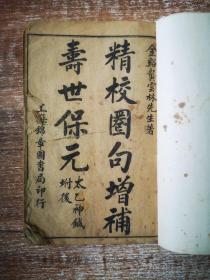 金谿龔雲林先生著
精校圈句增補
壽世保元
太乙神鍼
坿後
上海錦章圖書局印行